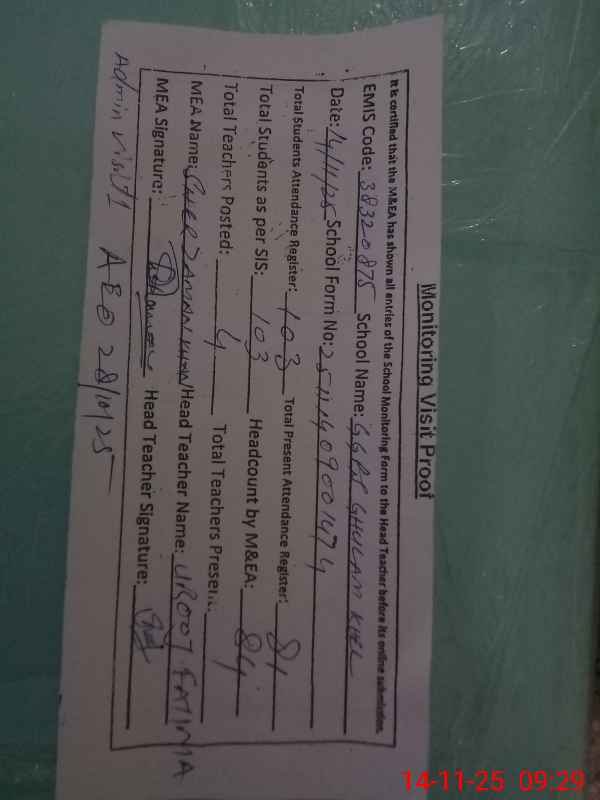 Monitoring Visit Proof
It is certified that the M&EA has shown all entries of the School Monitoring Form to the Head Teacher before its online submission.
EMIS Code: 38320875 School Name: GGPS GHULAM KHEL
Date: 14/11/25 School Form No: 2511140900147 4
Total Students Attendance Register: 103 Total Present Attendance Register: 84
Total Students as per SIS: 103 Headcount by M&EA: 84
Total Teachers Posted: 4 Total Teachers Present:
MEA Name: SHER ZAMAN KHAN Head Teacher Name: UROOJ FATIMA
MEA Signature: Head Teacher Signature:
Admin visit: AEO 28/10/25
14-11-25 09:29